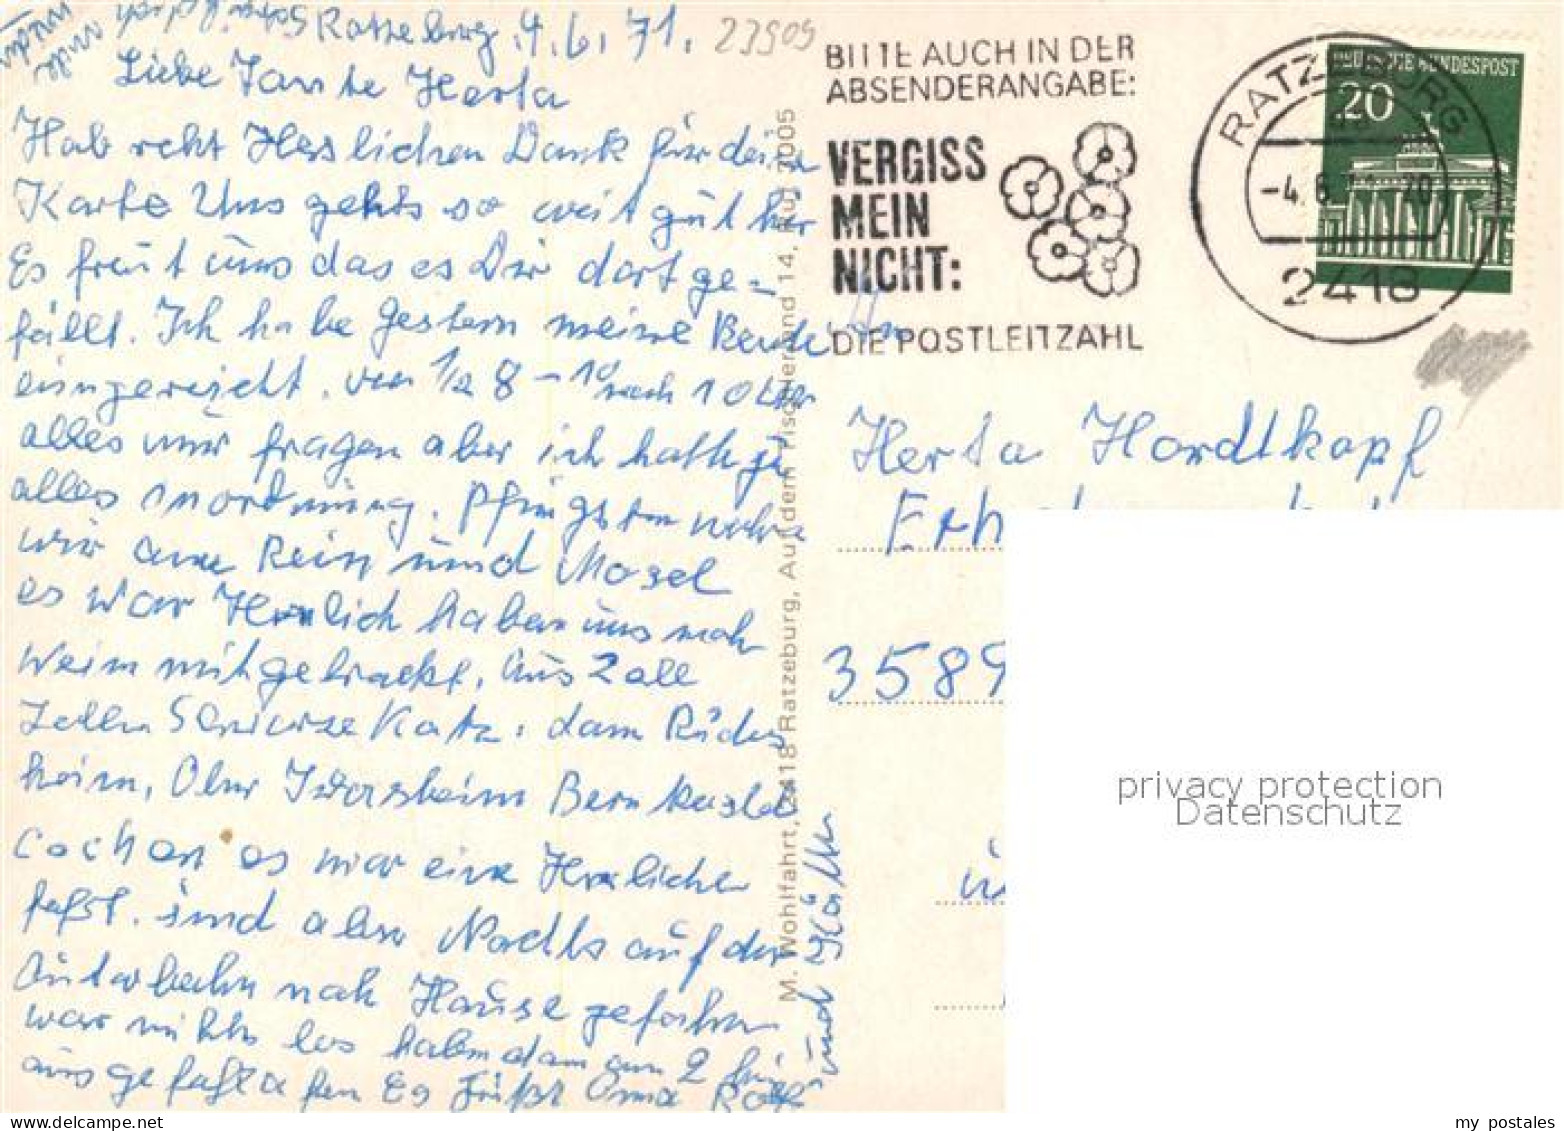 Ratzeburg, 4.6.71.
23909
Liebe Tante Herta
Hab recht Herslichen Dank für deine
Karte Uns gehts so weit gut hir
Es freut uns das es Dir dort ge-
fällt. Ich habe Gestern meine
eingereicht. von 1/2 8 - 10 nach 10 Uhr
alles mir fragen aber ich hatte ja
alles inordnung. Pfingsten wahre
wir am Rein und Mosel
es war Herrlich haben uns noch
Wein mitgebracht. aus Zall
Zeller Schwarze Katz. dann Rüdes
heim, Ober Bernkastel
cochem es war eine Herrliche
fahrt. sind aber Nachts auf der
Autobahn nah Hause gefahren
war nichts los haben dann um 2
Es Grüßt Oma Rolf
und Käthe
M. Wohlfahrt, 2418 Ratzeburg, Auf dem Fischerstand 14,
BITTE AUCH IN DER
ABSENDERANGABE:
VERGISS
MEIN
NICHT:
DIE POSTLEITZAHL
DEUTSCHE BUNDESPOST
20
RATZEBURG
2418
Herta Hordtkopf
3589
privacy protection
Datenschutz
my postales